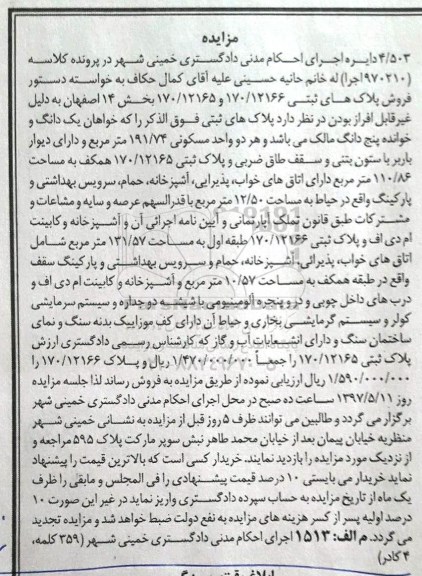 مزایده
۴/۵۰۳ دایره اجرای احکام مدنی دادگستری خمینی شهر در پرونده کلاسه
(۹۷۰۲۱۰ اجرا) له خانم حانیه حسینی علیه آقای کمال حکاف به خواسته دستور
فروش پلاک های ثبتی ۱۷۰/۱۲۱۶۶ و ۱۷۰/۱۲۱۶۵ بخش ۱۴ اصفهان به دلیل
غیر قابل افراز بودن در نظر دارد پلاک های ثبتی فوق الذکر را که خواهان یک دانگ و
خوانده پنج دانگ مالک می باشد و هر دو واحد مسکونی ۱۹۱/۷۴ متر مربع و دارای دیوار
باربر با ستون بتنی و سقف طاق ضربی و پلاک ثبتی ۱۷۰/۱۲۱۶۵ همکف به مساحت
۱۱۰/۸۶ متر مربع دارای اتاق های خواب، پذیرایی، آشپزخانه، حمام، سرویس بهداشتی و
پارکینگ واقع در حیاط به مساحت ۱۲/۵۰ متر مربع با قدرالسهم عرصه و سایه و مشاعات و
مشترکات طبق قانون تملک آپارتمانی و آیین نامه اجرائی آن و آشپزخانه و کابینت
ام دی اف و پلاک ثبتی ۱۷۰/۱۲۱۶۶ طبقه اول به مساحت ۱۳۱/۵۷ متر مربع شامل
اتاق های خواب، پذیرائی، آشپزخانه، حمام و سرویس بهداشتی و پارکینگ سقف
واقع در طبقه همکف به مساحت ۱۰/۵۷ متر مربع و آشپزخانه و کابینت ام دی اف و
درب های داخل چوبی و در و پنجره آلومینیومی با شیشه دو جداره و سیستم سرمایشی
کولر و سیستم گرمایشی بخاری و حیاط آن دارای کف موزاییک بدنه سنگ و نمای
ساختمان سنگ و دارای انشعابات آب و گاز که کارشناس رسمی دادگستری ارزش
پلاک ثبتی ۱۷۰/۱۲۱۶۵ را جمعاً ۱/۴۷۰/۰۰۰/۰۰۰ ریال و پلاک ۱۷۰/۱۲۱۶۶ را
۱/۵۹۰/۰۰۰/۰۰۰ ریال ارزیابی نموده از طریق مزایده به فروش رساند لذا جلسه مزایده
روز ۱۳۹۷/۵/۱۱ ساعت ده صبح در محل اجرای احکام مدنی دادگستری خمینی شهر
برگزار می گردد و طالبین می توانند ظرف ۵ روز قبل از مزایده به نشانی خمینی شهر
منظریه خیابان پیمان بعد از خیابان محمد طاهر نبش سوپر مارکت پلاک ۵۹۵ مراجعه و
از نزدیک مورد مزایده را بازدید نمایند. خریدار کسی است که بالاترین قیمت را پیشنهاد
نماید خریدار می بایستی ۱۰ درصد قیمت پیشنهادی را فی المجلس و مابقی را ظرف
یک ماه از تاریخ مزایده به حساب سپرده دادگستری واریز نماید در غیر این صورت ۱۰
درصد اولیه پس از کسر هزینه های مزایده به نفع دولت ضبط خواهد شد و مزایده تجدید
می گردد. م الف: ۱۵۱۳ اجرای احکام مدنی دادگستری خمینی شهر (۳۵۹ کلمه،
۴ کادر)